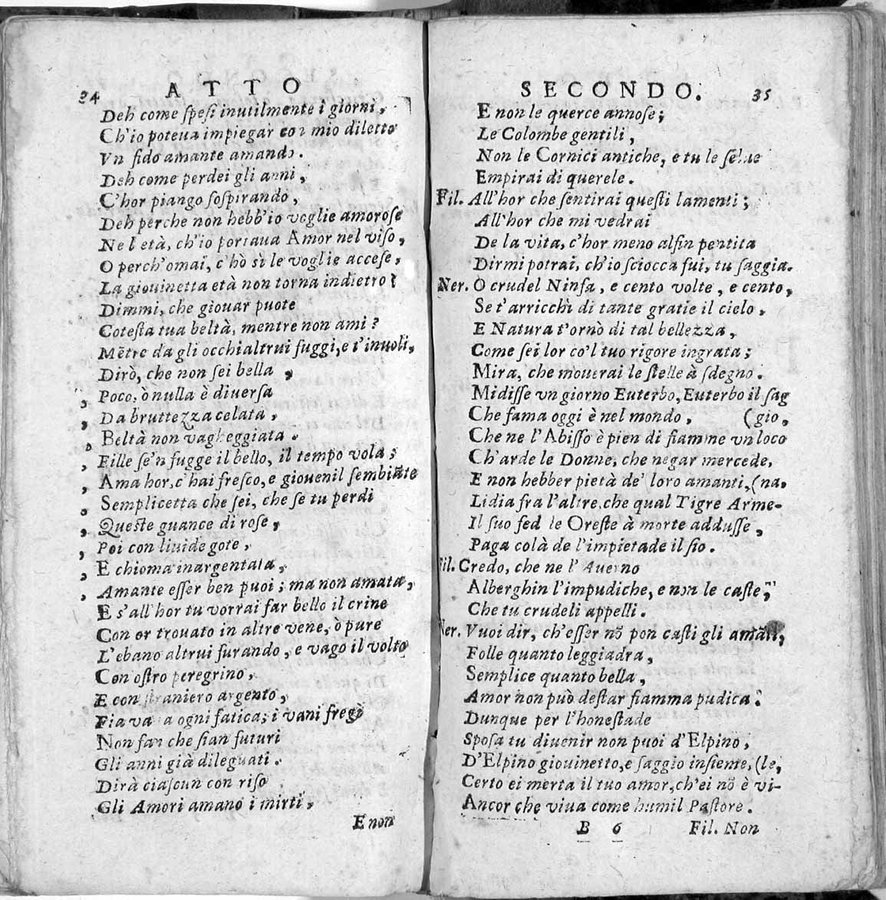 34 ATTO
Deh come spesi inutilmente i giorni,
Ch'io poteua impiegar con mio diletto
Vn fido amante amando.
Deh come perdei gli anni,
C'hor piango sospirando,
Deh perche non hebb'io voglie amorose
Ne l età, ch'io portaua Amor nel viso,
O perch'omai, c'hò sì le voglie accese,
La giouinetta età non torna indietro?
Dimmi, che giouar puote
Cotesta tua beltà, mentre non ami?
Mẽtre da gli occhi altrui fuggi, e t'inuoli,
Dirò, che non sei bella,
, Poco, ò nulla è diuersa
, Da bruttezza celata,
, Beltà non vagheggiata.
, Fille se'n fugge il bello, il tempo vola;
, Ama hor, c'hai fresco, e giouenil sembiãte
, Semplicetta che sei, che se tu perdi
, Queste guance di rose,
, Poi con liuide gote,
, E chioma inargentata,
, Amante esser ben puoi; ma non amata,
E s'all'hor tu vorrai far bello il crine
Con or trouato in altre vene, ò pure
L'ebano altrui furando, e vago il volto
Con ostro peregrino,
E con straniero argento,
Fia vana ogni fatica; i vani fregi
Non fan che sian futuri
Gli anni già dileguati.
Dirà ciascun con riso
Gli Amori amano i mirti,
E non
SECONDO. 35
E non le querce annose;
Le Colombe gentili,
Non le Cornici antiche, e tu le selue
Empirai di querele.
Fil. All'hor che sentirai questi lamenti;
All'hor che mi vedrai
De la vita, c'hor meno alfin pentita
Dirmi potrai, ch'io sciocca fui, tu saggia.
Ner. O crudel Ninfa, e cento volte, e cento,
Se t'arricchì di tante gratie il cielo,
E Natura t'ornò di tal bellezza,
Come sei lor co'l tuo rigore ingrata;
Mira, che mouerai le stelle à sdegno.
Mi disse vn giorno Euterbo, Euterbo il sag
Che fama oggi è nel mondo, (gio,
Che ne l'Abisso è pien di fiamme vn loco
Ch'arde le Donne, che negar mercede,
E non hebber pietà de' loro amanti, (na,
Lidia fra l'altre, che qual Tigre Arme-
Il suo fed le Oreste à morte addusse,
Paga colà de l'impietade il fio.
Fil. Credo, che ne l'Auerno
Alberghin l'impudiche, e non le caste,
Che tu crudeli appelli.
Ner. Vuoi dir, ch'esser nõ pon casti gli amãti,
Folle quanto leggiadra,
Semplice quanto bella,
Amor non può destar fiamma pudica?
Dunque per l'honestade
Sposa tu diuenir non puoi d'Elpino,
D'Elpino giouinetto, e saggio insieme, (le,
Certo ei merta il tuo amor, ch'ei nõ è vi-
Ancor che viua come humil Pastore.
B 6 Fil. Non